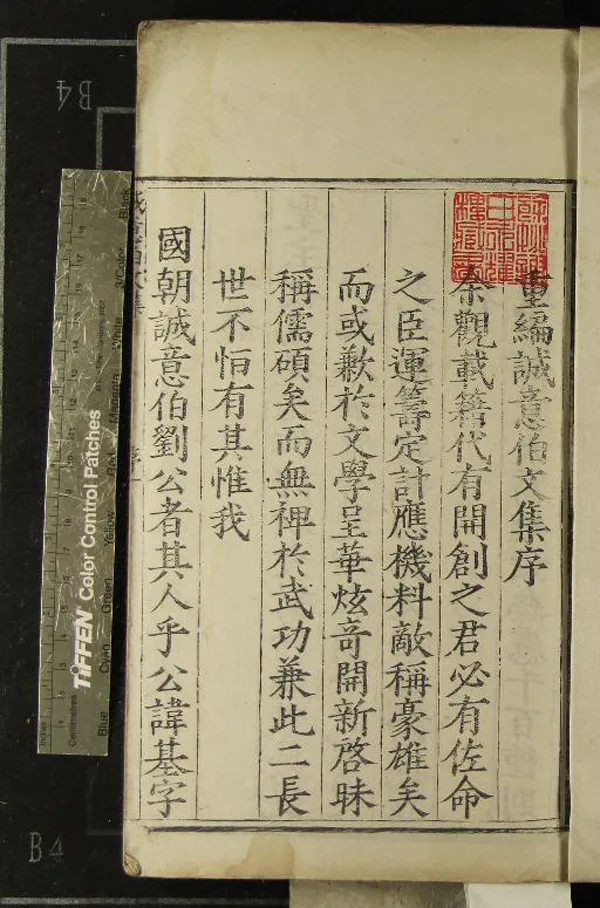 重編誠意伯文集序
余觀載籍代有開創之君必有佐命
之臣運籌定計應機料敵稱豪雄矣
而或歉於文學呈華炫竒開新啓昧
稱儒碩矣而無裨於武功兼此二長
世不恒有其惟我
國朝誠意伯劉公者其人乎公諱基字
TIFFEN Color Control Patches
Blue
Cyan
Green
Yellow
Red
Magenta
White
3/Color
Black
Inches
Centimetres
B4
B4